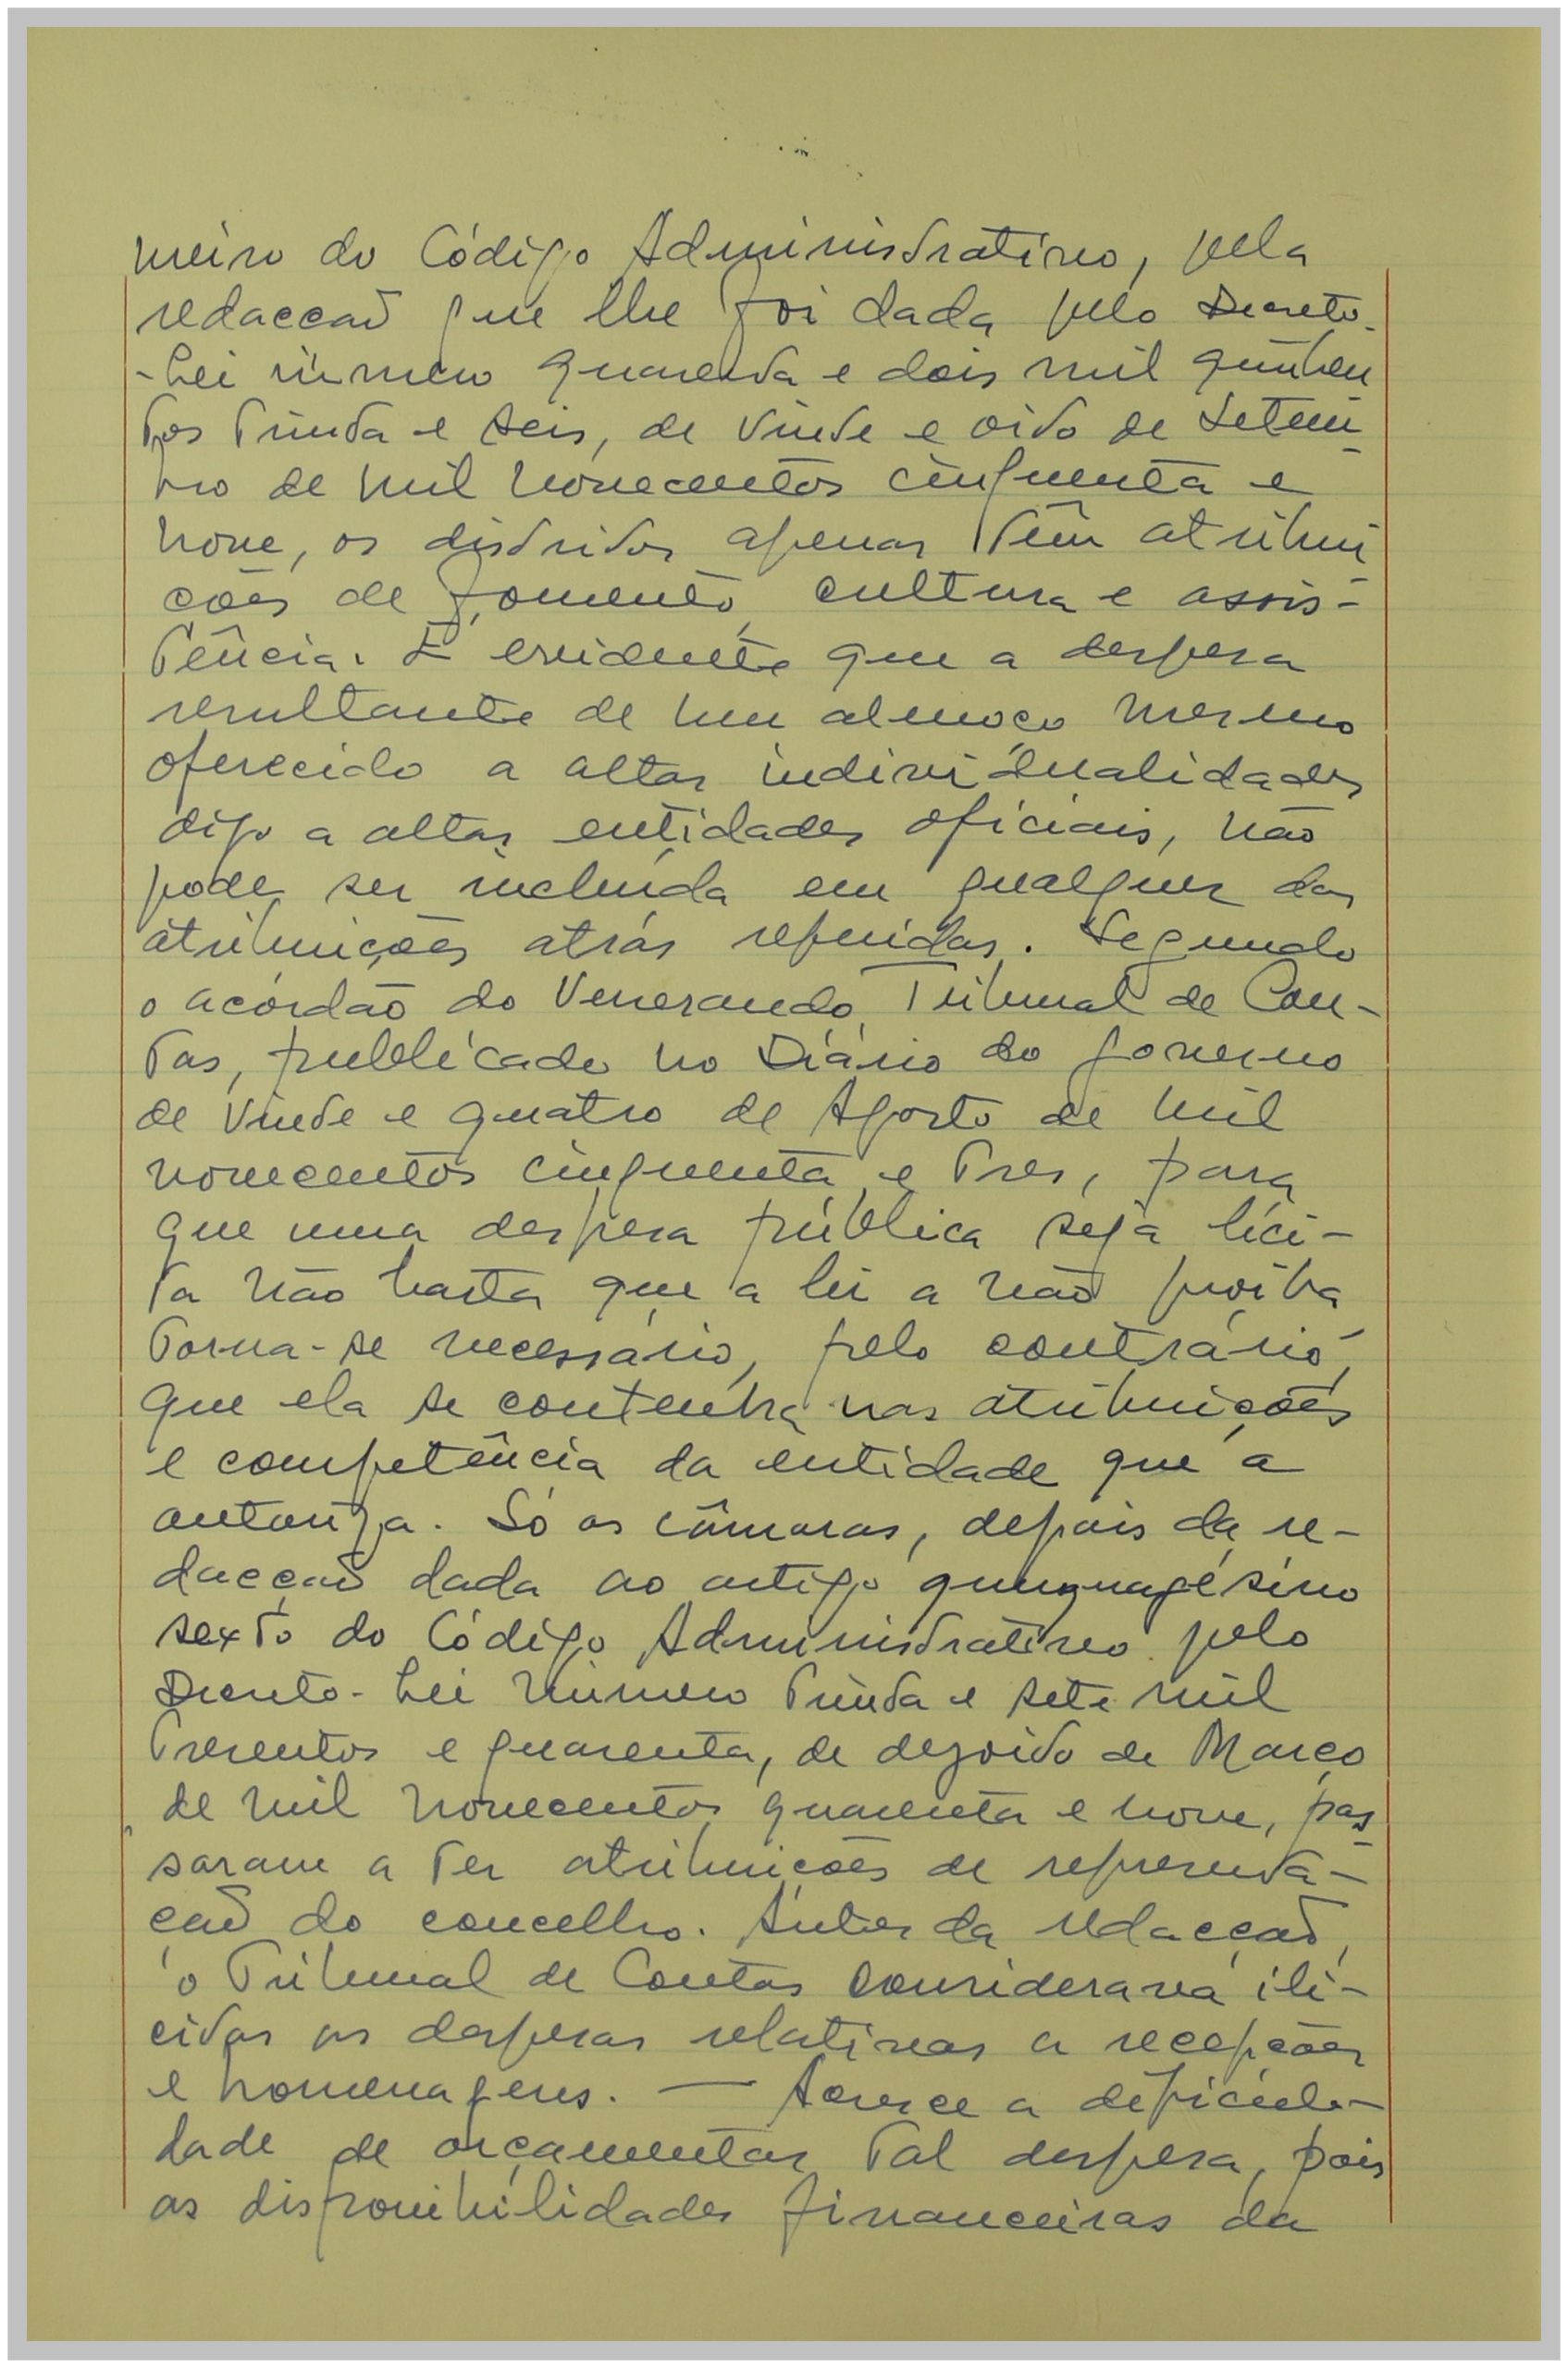 meiro do Código Administrativo, pela
redacção que lhe foi dada pelo Decreto-
-Lei número quarenta e dois mil quinhen
tos trinta e seis, de vinte e oito de Setem
bro de mil novecentos cinquenta e
nove, os distritos apenas têm atribui
ções de fomento, cultura e assis-
tência. É evidente que a despesa
resultante de um almoço mesmo
oferecido a altas individualidades
digo a altas entidades oficiais, não
pode ser incluída em qualquer das
atribuições atrás referidas. Segundo
o acórdão do Venerando Tribunal de Con-
tas, publicado no Diário do Governo
de vinte e quatro de Agosto de mil
novecentos cinquenta e tres, para
que uma despesa pública seja líci-
ta não basta que a lei a não proíba
torna-se necessário, pelo contrário,
que ela se contenha nas atribuições
e competência da entidade que a
autoriza. Só as câmaras, depois da re-
dacção dada ao artigo quinquagésimo
sexto do Código Administrativo pelo
Decreto-Lei número trinta e sete mil
trezentos e quarenta, de dezoito de Março
de mil novecentos quarenta e nove, pas
saram a ter atribuições de representa-
ção do concelho. Antes da redacção,
o Tribunal de Contas considerava ilí-
citas as despesas relativas a recepções
e homenagens. — Acresce a dificul-
dade de orçamentar tal despesa, pois
as disponibilidades financeiras da